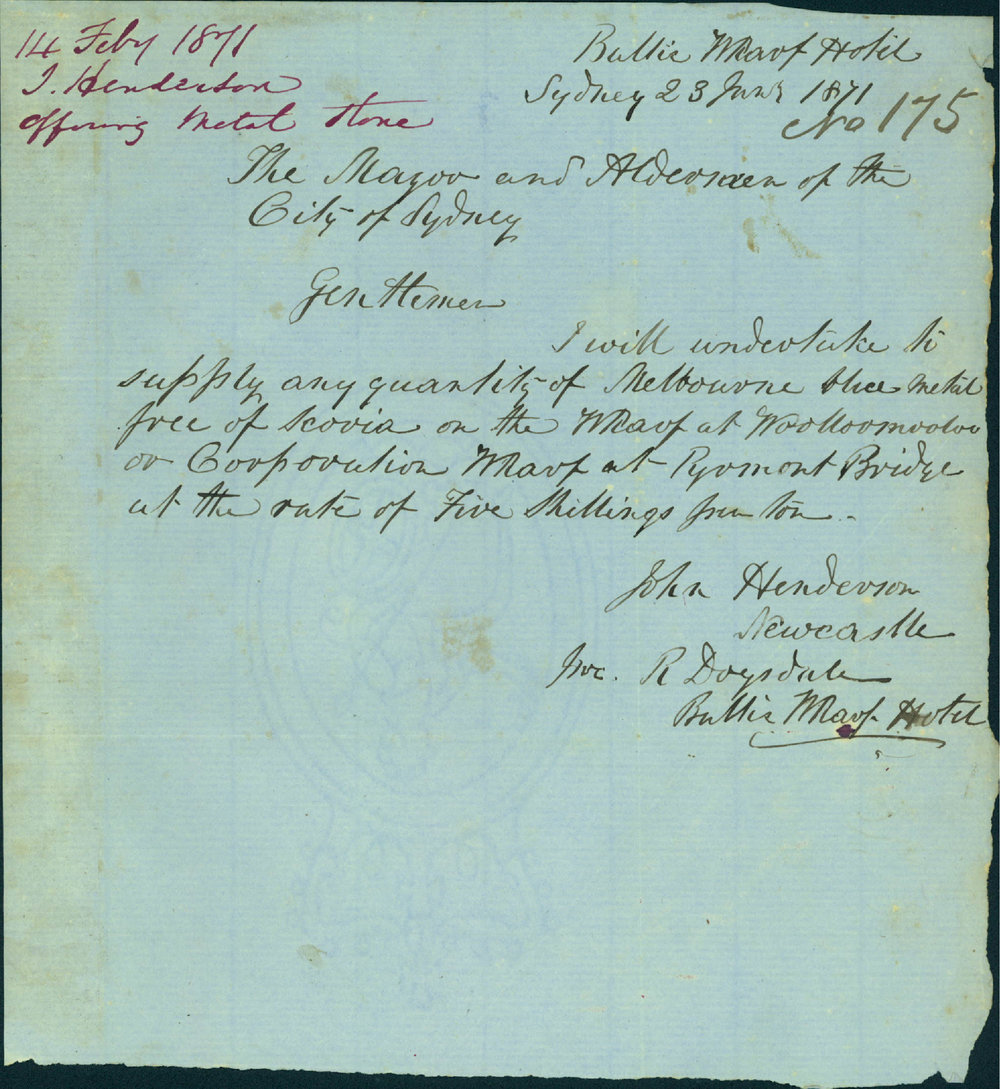 14 Feby 1871
J. Henderson
Offering Metal Stone
Bullie Wharf Hotel
Sydney 23 Jany 1871
No 175
The Mayor and Aldermen of the
City of Sydney
Gentlemen
I will undertake to
supply any quantity of Melbourne blue metal
free of Scoria on the Wharf at Woolloomooloo
or Corporation Wharf at Pyrmont Bridge
at the rate of Five Shillings per ton.
John Henderson
Newcastle
R Dogsdale
Bullie Wharf Hotel